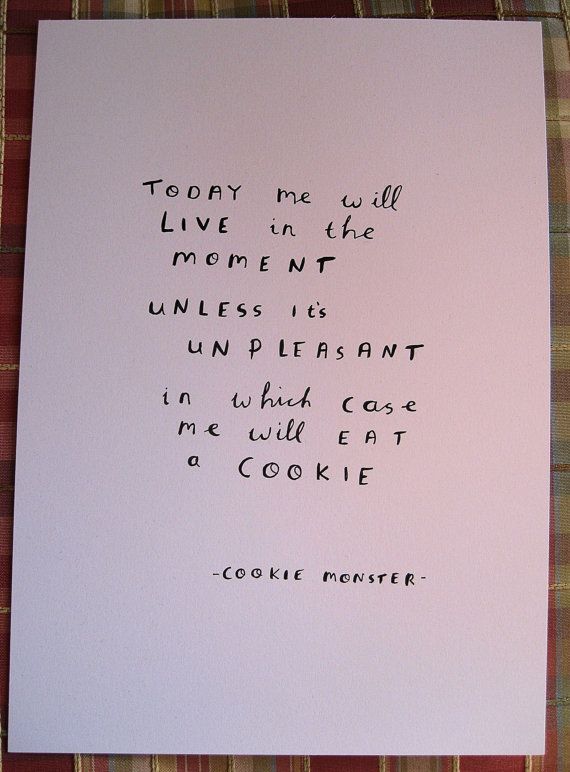 TODAY me will
LIVE in the
MOMENT
UNLESS It's
UNPLEASANT
in which case
me will EAT
a COOKIE
-COOKIE MONSTER-